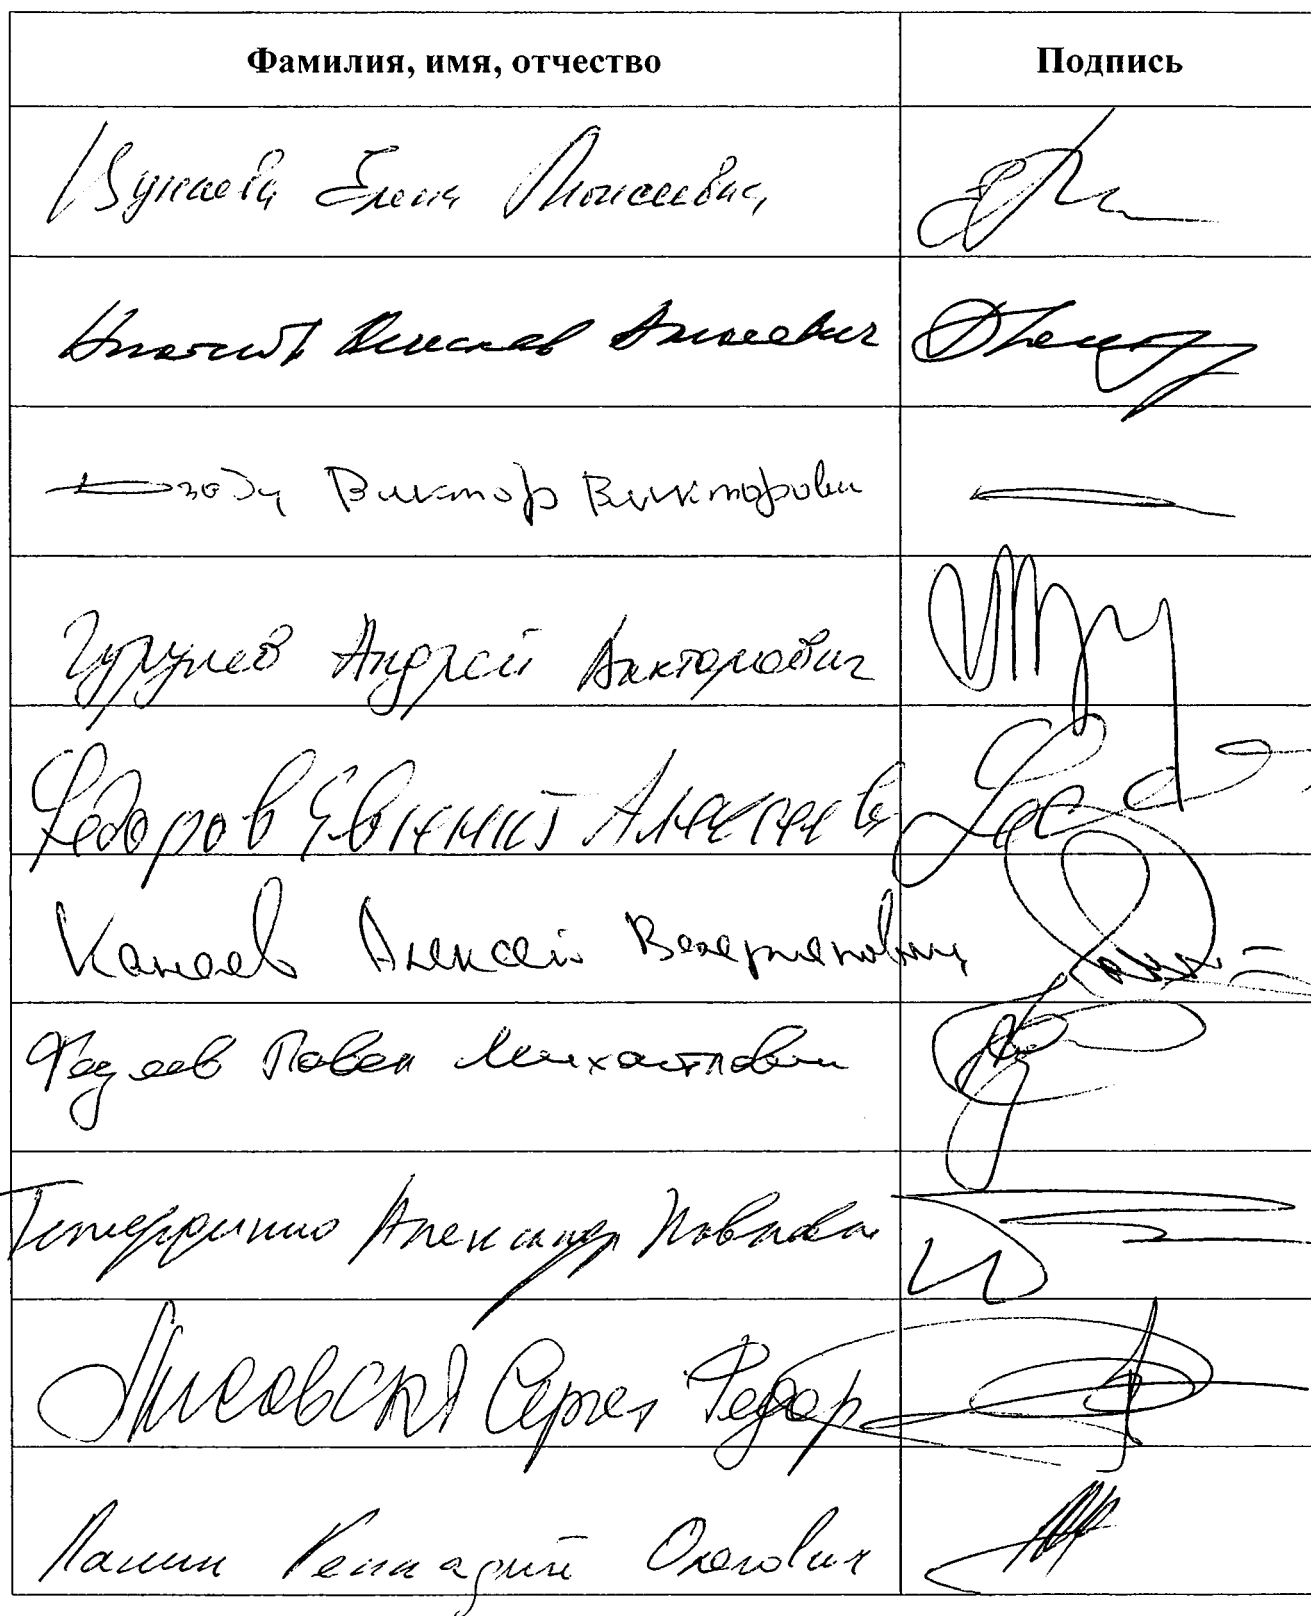 Фамилия, имя, отчество Подпись
Цунаева Елена Моисеевна
Вячеслав
Водолацкий Виктор Викторович
Гурулев Андрей Викторович
Федоров Евгений Алексеев
Канаев Алексей Валерианович
Федяев Павел Михайлович
Александр Павлович
Лисовский Сергей Федор
Панин Геннадий Олегович